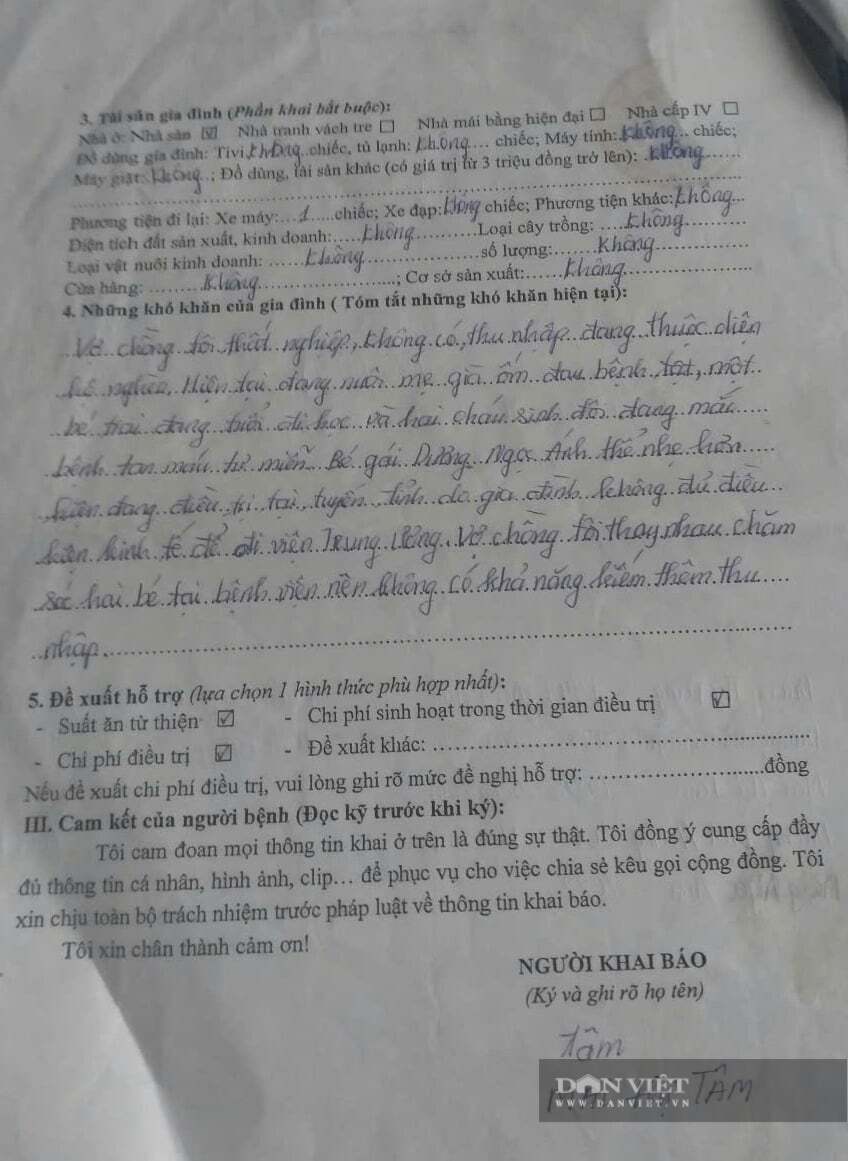 3. Tài sản gia đình (Phần khai bắt buộc):
Nhà ở: Nhà sàn ☑ Nhà tranh vách tre ☐ Nhà mái bằng hiện đại ☐ Nhà cấp IV ☐
Đồ dùng gia đình: Tivi không chiếc, tủ lạnh: không.... chiếc; Máy tính: không... chiếc;
Máy giặt: không..; Đồ dùng, tài sản khác (có giá trị từ 3 triệu đồng trở lên): không......
Phương tiện đi lại: Xe máy:...1....chiếc; Xe đạp: không chiếc; Phương tiện khác: không...
Diện tích đất sản xuất, kinh doanh:....không..........Loại cây trồng: ....không..........
Loại vật nuôi kinh doanh: ......không....................số lượng:.......không..............
Cửa hàng: .........không......................; Cơ sở sản xuất:......không..................
4. Những khó khăn của gia đình ( Tóm tắt những khó khăn hiện tại):
Vợ chồng tôi thất nghiệp, không có, thu nhập đang thuộc diện
hộ nghèo. Hiện tại đang nuôi mẹ già ốm đau bệnh tật, một
bé trai đang tuổi đi học và hai cháu sinh đôi đang mắc
bệnh tan máu tự miễn. Bé gái Dương Ngọc Ánh thể nhẹ hơn
hiện đang điều trị tại tuyến tỉnh do gia đình không đủ điều
kiện kinh tế để đi viện Trung Ương. Vợ chồng tôi thay nhau chăm
sóc hai bé tại bệnh viện nên không có khả năng kiếm thêm thu
nhập
5. Đề xuất hỗ trợ (lựa chọn 1 hình thức phù hợp nhất):
- Suất ăn từ thiện ☑ - Chi phí sinh hoạt trong thời gian điều trị ☑
- Chi phí điều trị ☑ - Đề xuất khác: ..................................................
Nếu đề xuất chi phí điều trị, vui lòng ghi rõ mức đề nghị hỗ trợ: ........................đồng
III. Cam kết của người bệnh (Đọc kỹ trước khi ký):
Tôi cam đoan mọi thông tin khai ở trên là đúng sự thật. Tôi đồng ý cung cấp đầy
đủ thông tin cá nhân, hình ảnh, clip… để phục vụ cho việc chia sẻ kêu gọi cộng đồng. Tôi
xin chịu toàn bộ trách nhiệm trước pháp luật về thông tin khai báo.
Tôi xin chân thành cảm ơn!
NGƯỜI KHAI BÁO
(Ký và ghi rõ họ tên)
Tâm
DÂN VIỆT
WWW.DANVIET.VN
TÂM